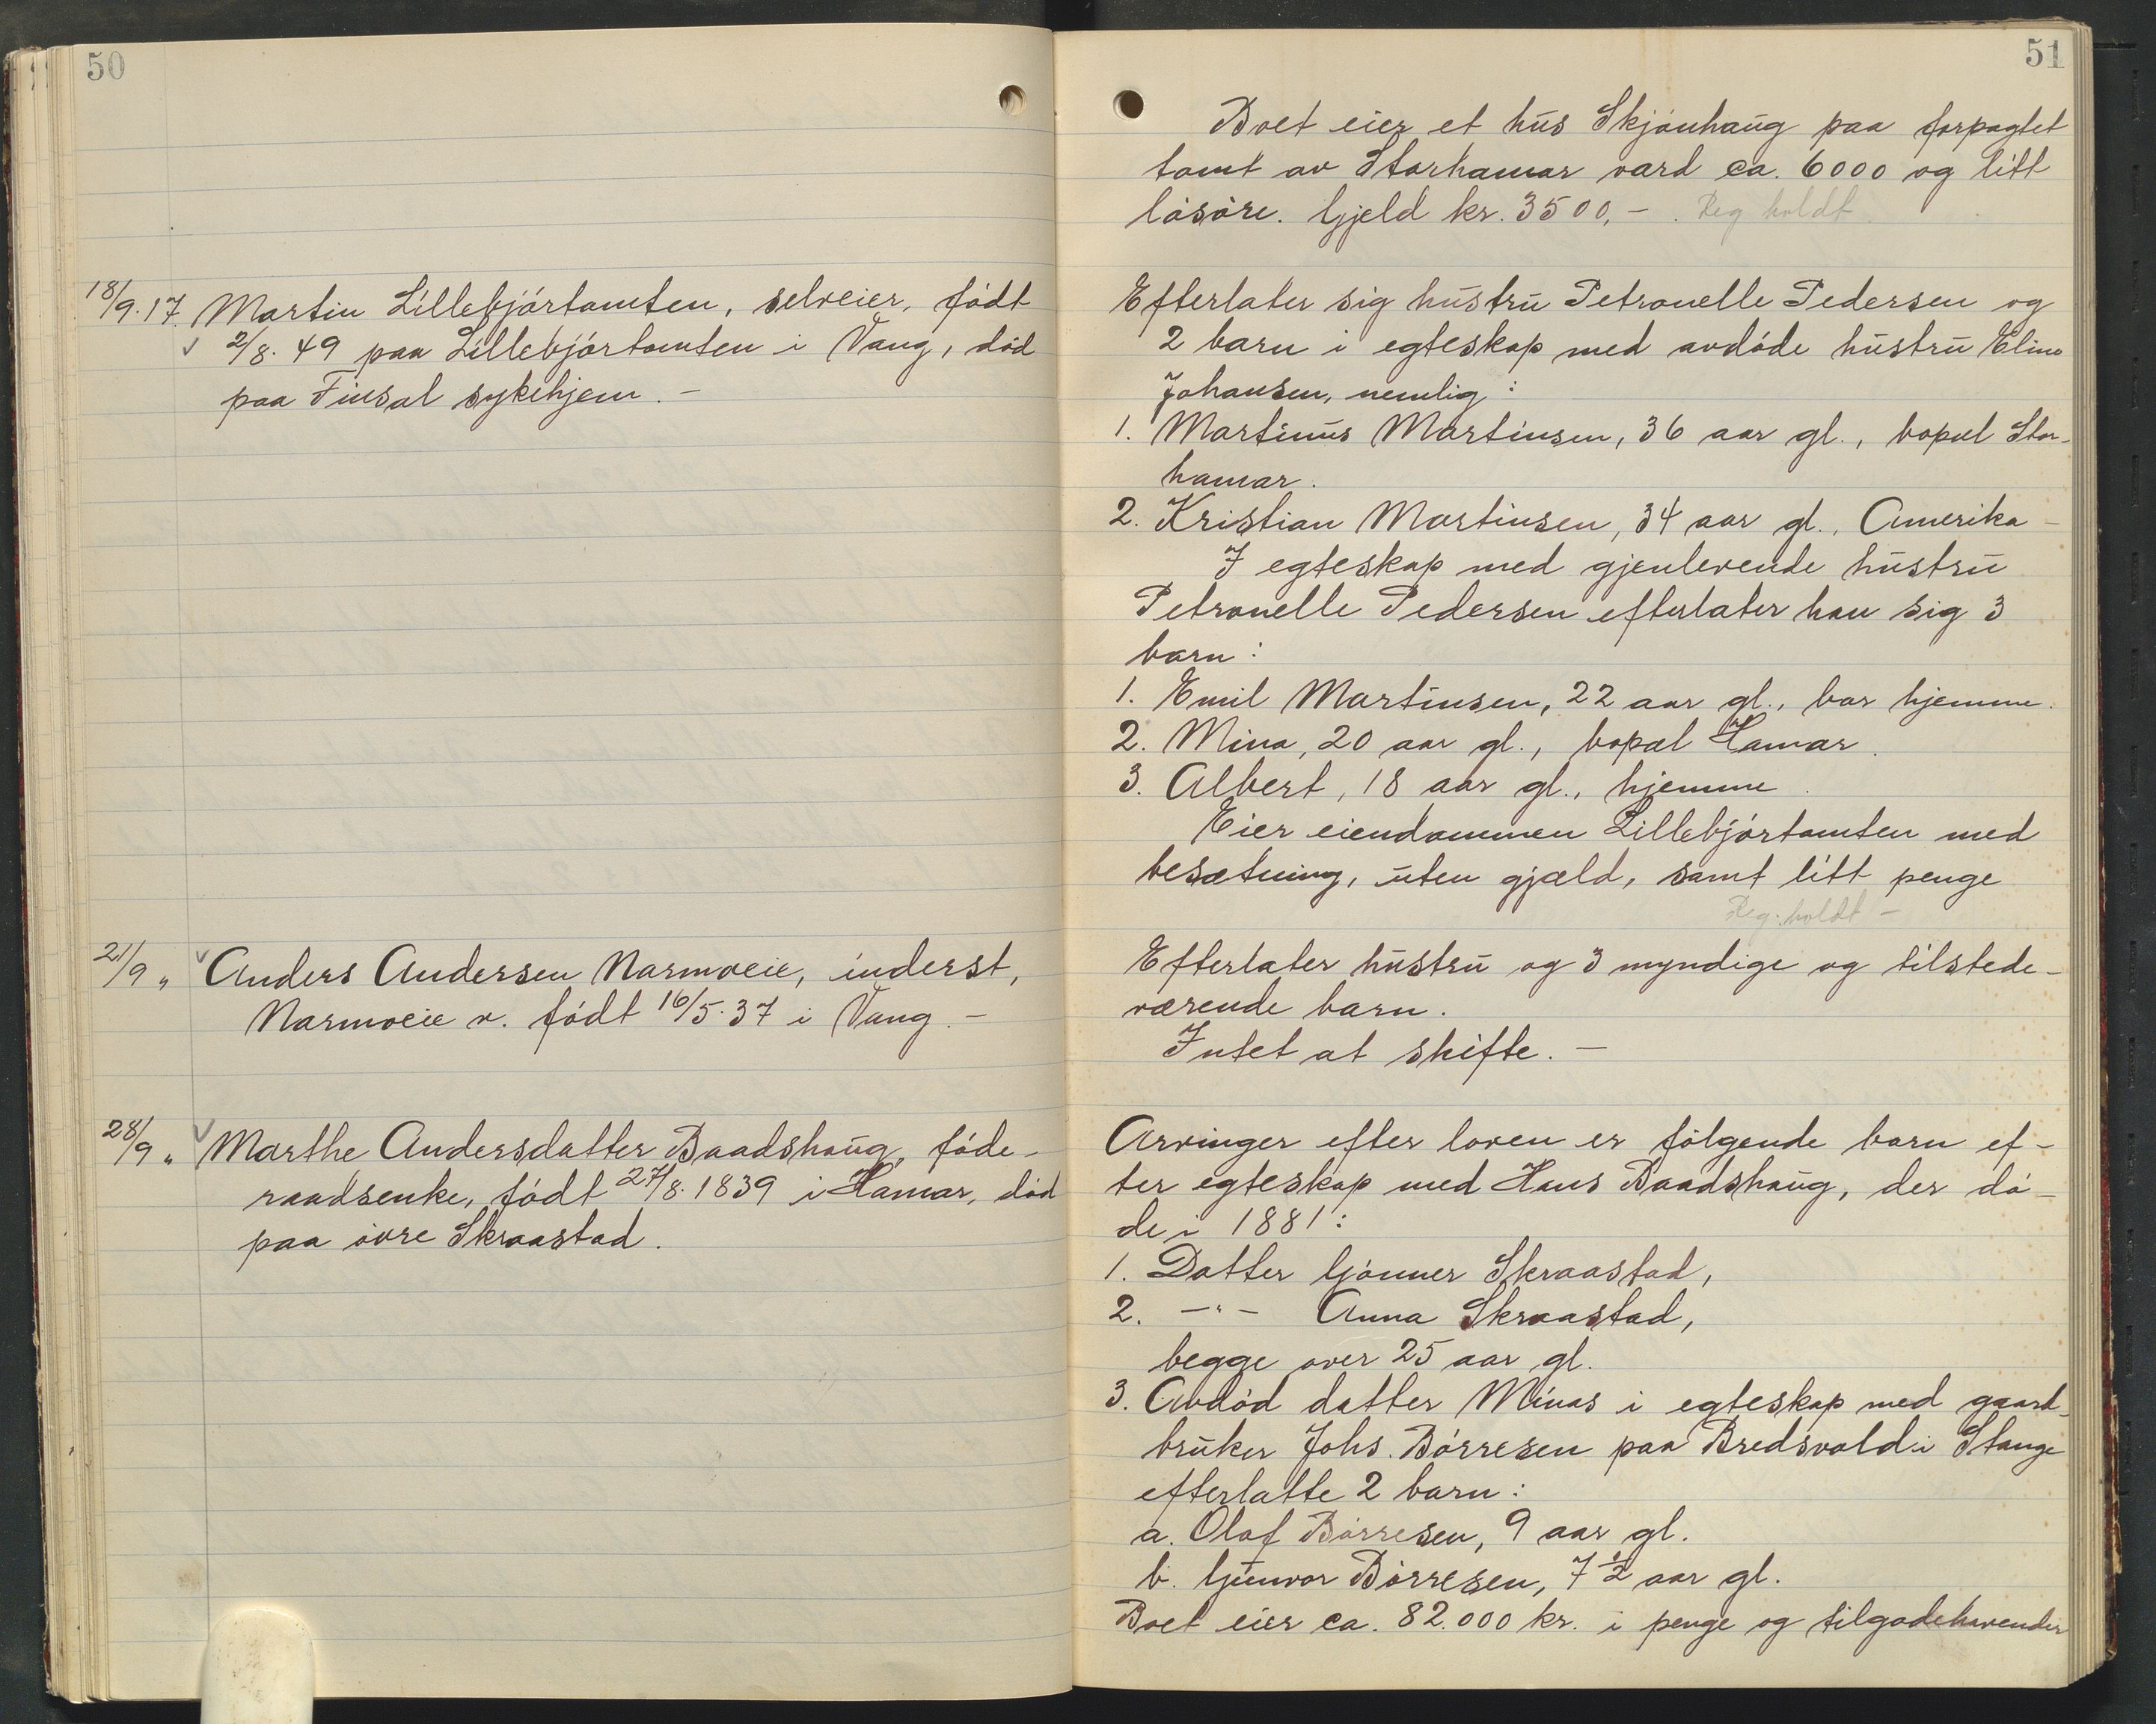 50
18/9.17. Martin Lillebjørtomten, selveier, født
2/8.49 paa Lillebjørtomten i Vang, död
paa Finsal sykehjem. –
21/9 „ Anders Andersen Narmoeie, inderst,
Narmoeie v. født 16/5.37 i Vang. –
28/9 „ Marthe Andersdatter Baadshaug, føde-
raadsenke, født 27/8.1839 i Hamar, død
paa øvre Skraastad.
51
Boet eier et hus Skjønhaug paa forpagtet
tomt av Storhamar værd ca. 6000 og litt
løsøre. Gjeld kr. 3500,– . Reg holdt
Efterlater sig hustru Petronelle Pedersen og
2 barn i egteskap med avdøde hustru Eline
Johansen, nemlig:
1. Martinus Martinsen, 36 aar gl., bopæl Stor-
hamar.
2. Kristian Martinsen, 34 aar gl., Amerika –
I egteskap med gjenlevende hustru
Petronelle Pedersen efterlater han sig 3
barn:
1. Emil Martinsen, 22 aar gl., bor hjemme.
2. Mina, 20 aar gl., bopæl Hamar.
3. Albert, 18 aar gl., hjemme.
Eier eiendommen Lillebjørtomten med
besætning, uten gjæld, samt litt penge
Reg. holdt –
Efterlater hustru og 3 myndige og tilstede-
værende barn.
Intet at skifte. –
Arvinger efter loven er følgende barn ef-
ter egteskap med Hans Baadshaug, der dø-
de i 1881:
1. Datter Gjønner Skraastad,
2. –„– Anna Skraastad,
begge over 25 aar gl.
3. Avdød datter Minas i egteskap med gaard-
bruker Johs. Børresen paa Bredsvold i Stange
efterlatte 2 barn:
a. Olaf Børresen, 9 aar gl.
b. Gunvor Børresen, 7½ aar gl.
Boet eier ca. 82.000 kr. i penge og tilgodehavender